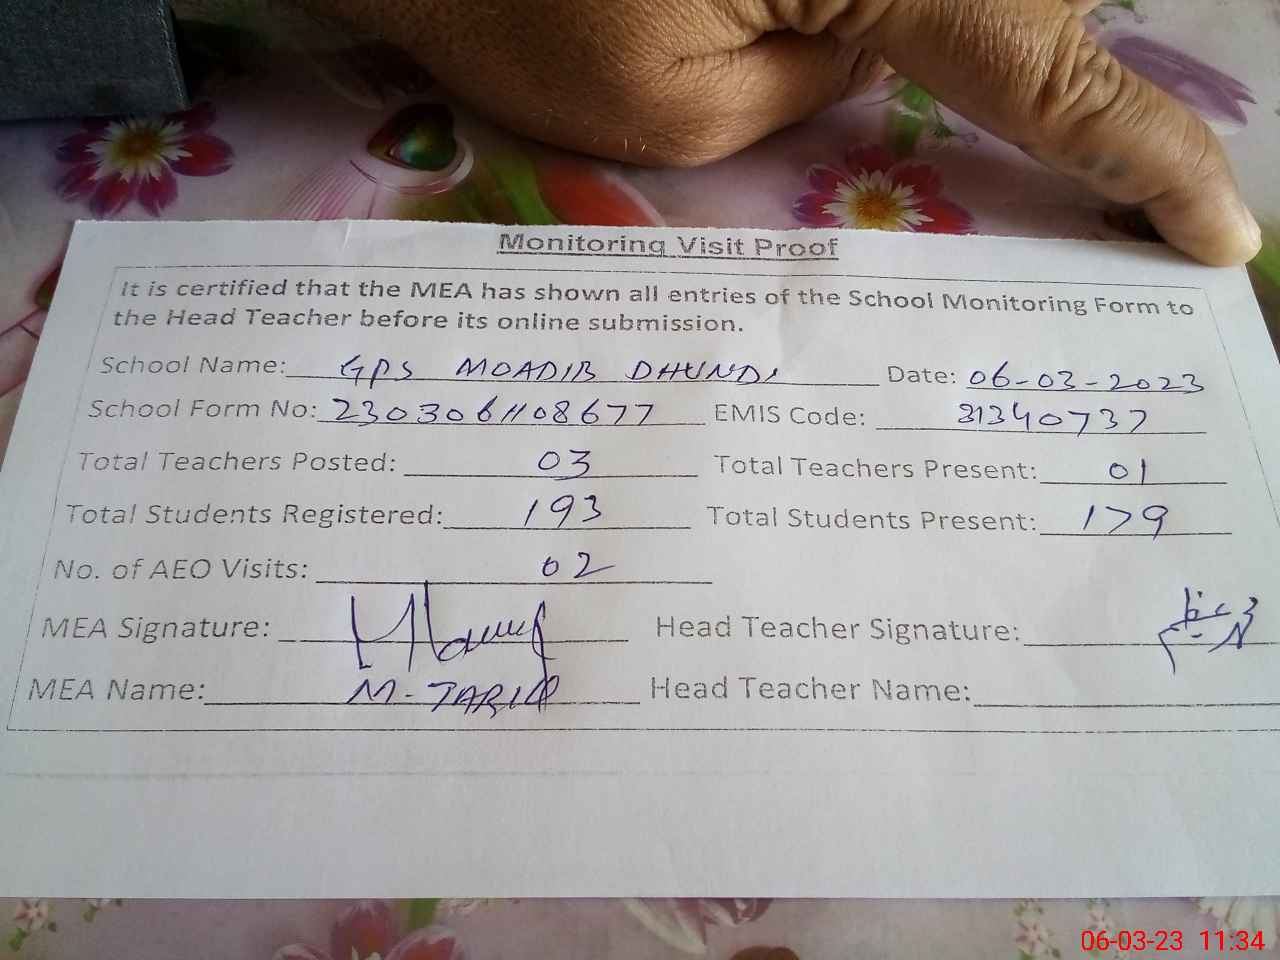 Monitoring Visit Proof
It is certified that the MEA has shown all entries of the School Monitoring Form to
the Head Teacher before its online submission.
School Name: GPS MOADIB DHUNDI Date: 06-03-2023
School Form No: 2303061108677 EMIS Code: 31340737
Total Teachers Posted: 03 Total Teachers Present: 01
Total Students Registered: 193 Total Students Present: 179
No. of AEO Visits: 02
MEA Signature: Head Teacher Signature:
MEA Name: M-TARIQ Head Teacher Name:
06-03-23 11:34